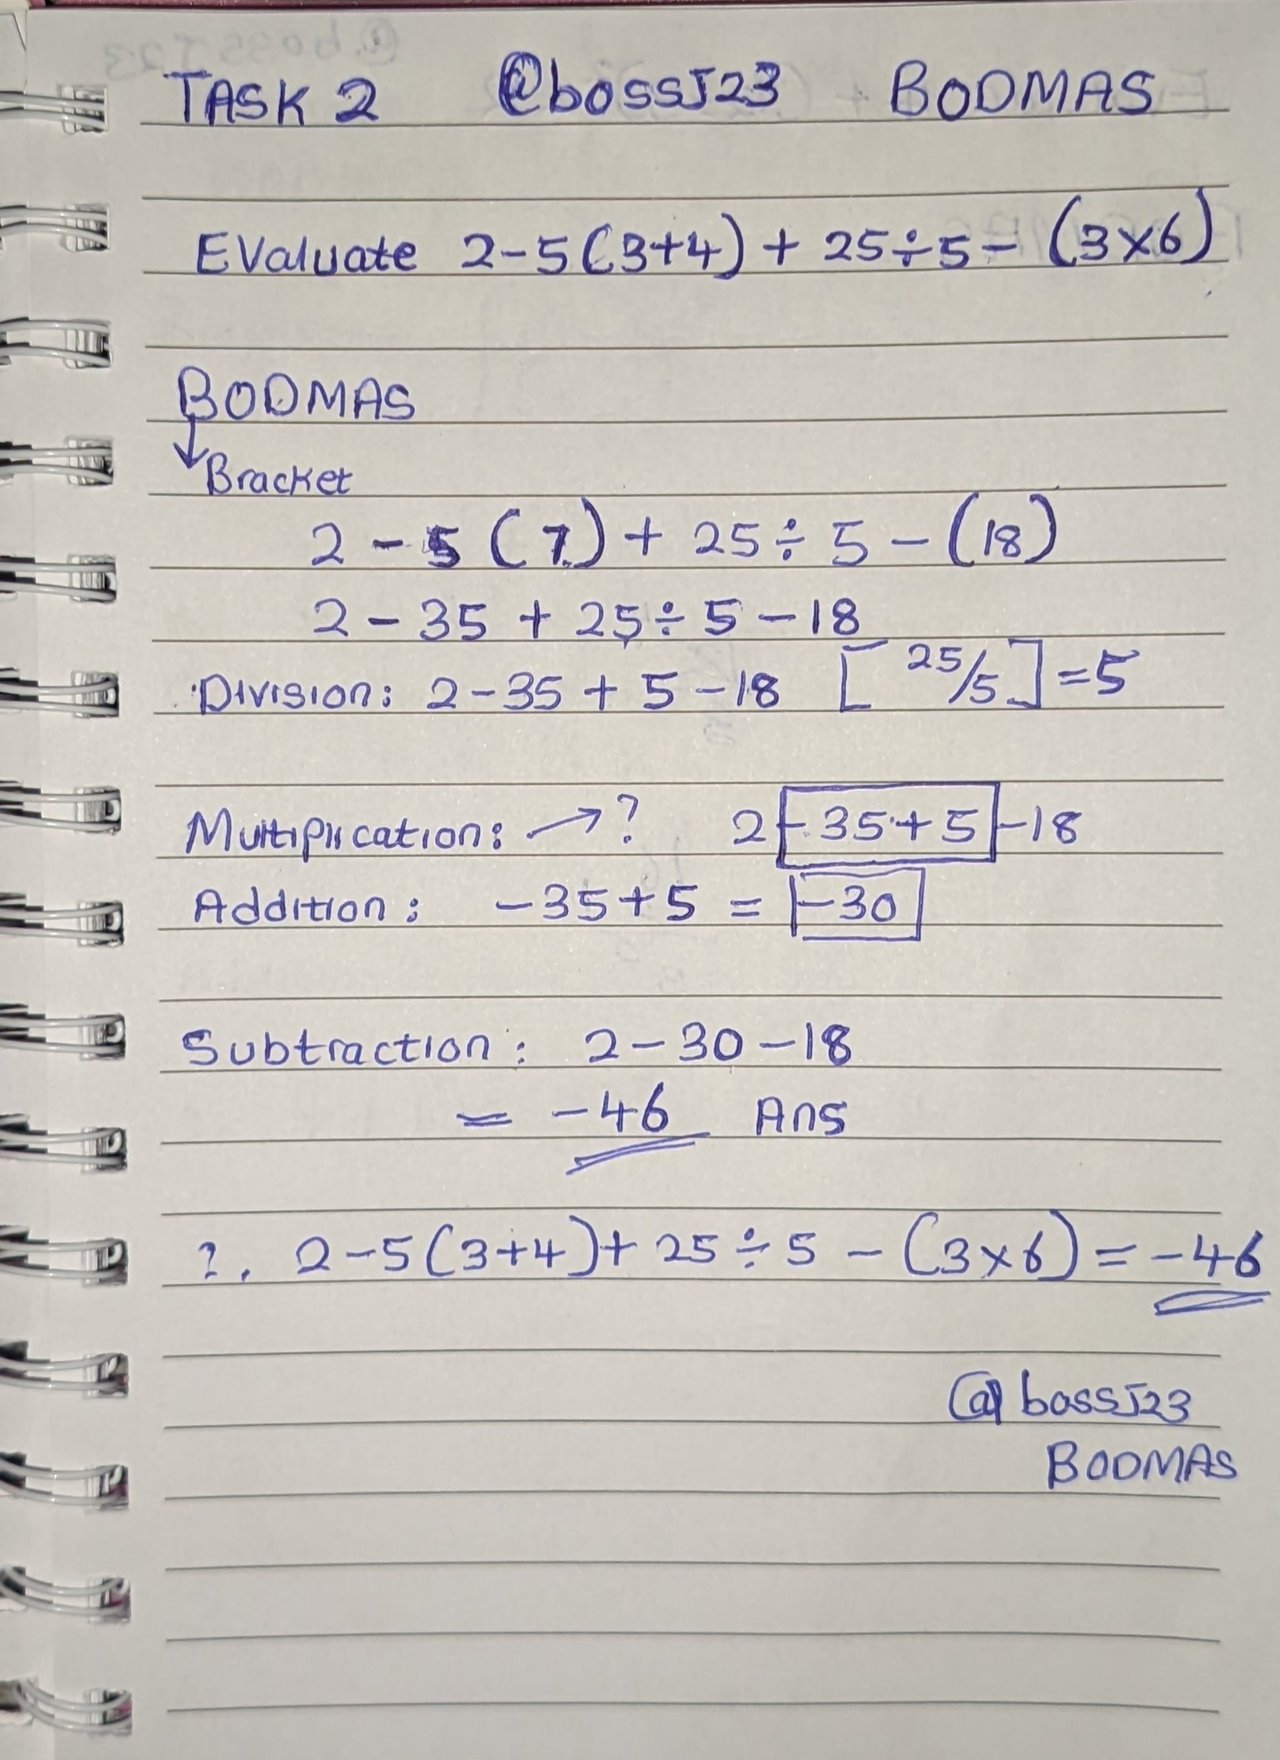 TASK 2 @bossJ23 BODMAS
Evaluate 2-5(3+4) + 25÷5 - (3×6)
BODMAS
↓Bracket
2 - 5 (7) + 25 ÷ 5 - (18)
2 - 35 + 25 ÷ 5 - 18
Division: 2 - 35 + 5 - 18 [25/5] = 5
Multiplication: → ? 2 - 35 + 5 - 18
Addition: -35 + 5 = -30
Subtraction: 2 - 30 - 18
= -46 Ans
?. 2 - 5(3+4) + 25 ÷ 5 - (3×6) = -46
@bossJ23
BODMAS